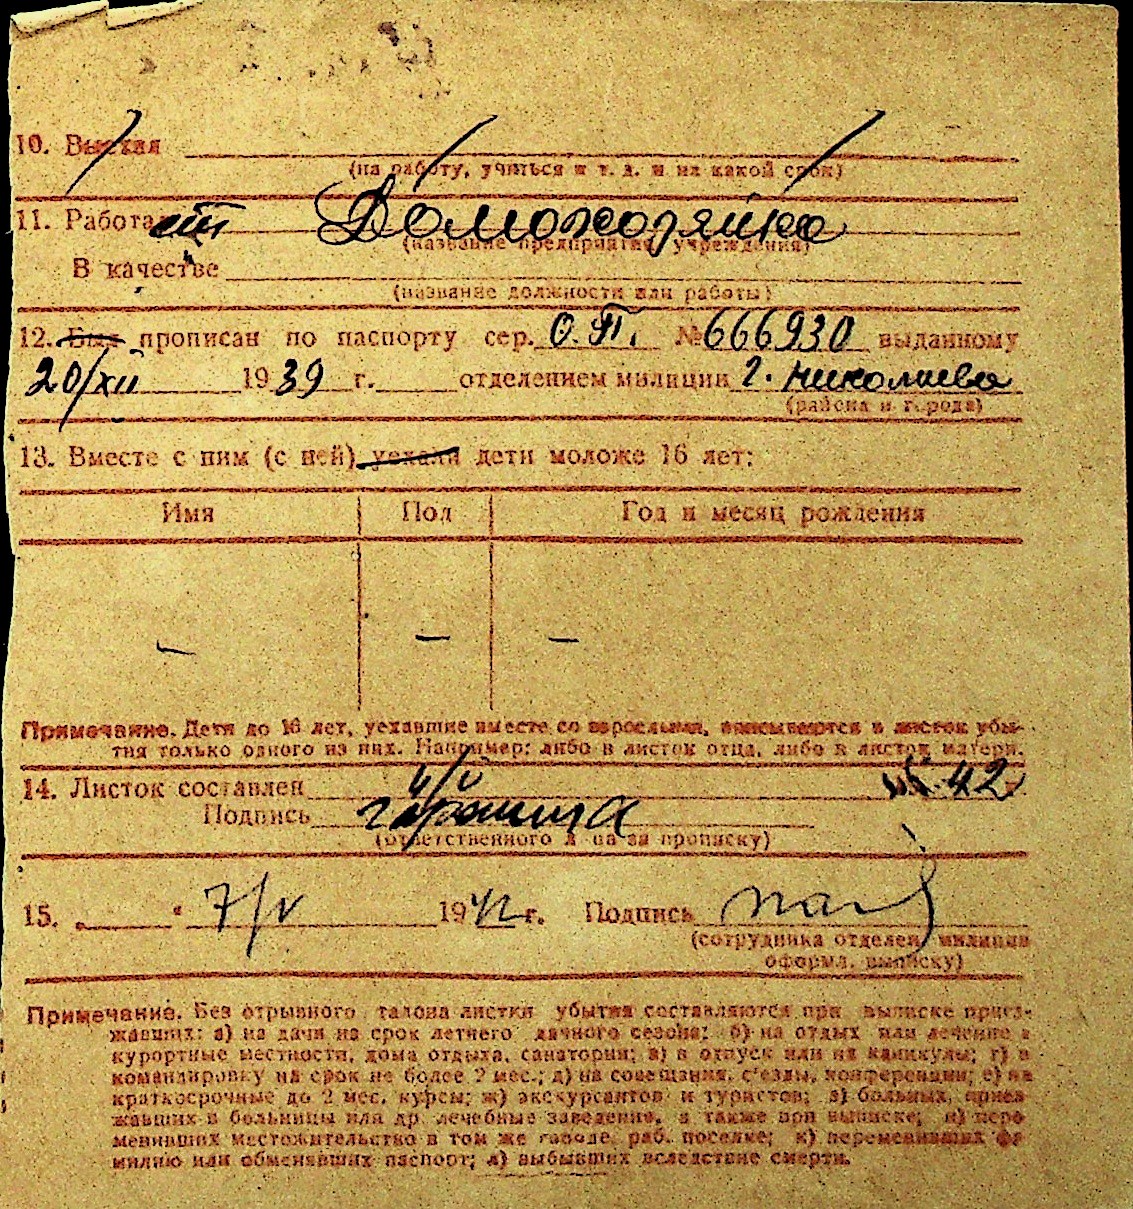 10. Выехал
(на работу, учиться и т. д. и на какой срок)
11. Работает Домохозяйка
(название предприятия, учреждения)
В качестве
(название должности или работы)
12. Был прописан по паспорту сер. О.П. № 666930 выданному
20/XII 1939 г. отделением милиции г. Николаева
(района и города)
13. Вместе с ним (с ней) уехали дети моложе 16 лет:
Имя Пол Год и месяц рождения
— — —
Примечание. Дети до 16 лет, уехавшие вместе со взрослыми, вписываются в листок убы-
тия только одного из них. Например: либо в листок отца, либо в листок матери.
14. Листок составлен 42 г.
Подпись
(ответственного лица за прописку)
15. „ “ 7/V 1942 г. Подпись
(сотрудника отделен. милиции
оформл. выписку)
Примечание. Без отрывного талона листки убытия составляются при выписке приез-
жавших: а) на дачи на срок летнего дачного сезона; б) на отдых или лечение в
курортные местности, дома отдыха, санатории; в) в отпуск или на каникулы; г) в
командировку на срок не более 2 мес.; д) на совещания, с'езды, конференции; е) на
краткосрочные до 2 мес. курсы; ж) экскурсантов и туристов; з) больных, приез-
жавших в больницы или др. лечебные заведения, а также при выписке; и) пере-
менивших местожительство в том же городе, раб. поселке; к) переменивших фа-
милию или обменявших паспорт; л) выбывших вследствие смерти.